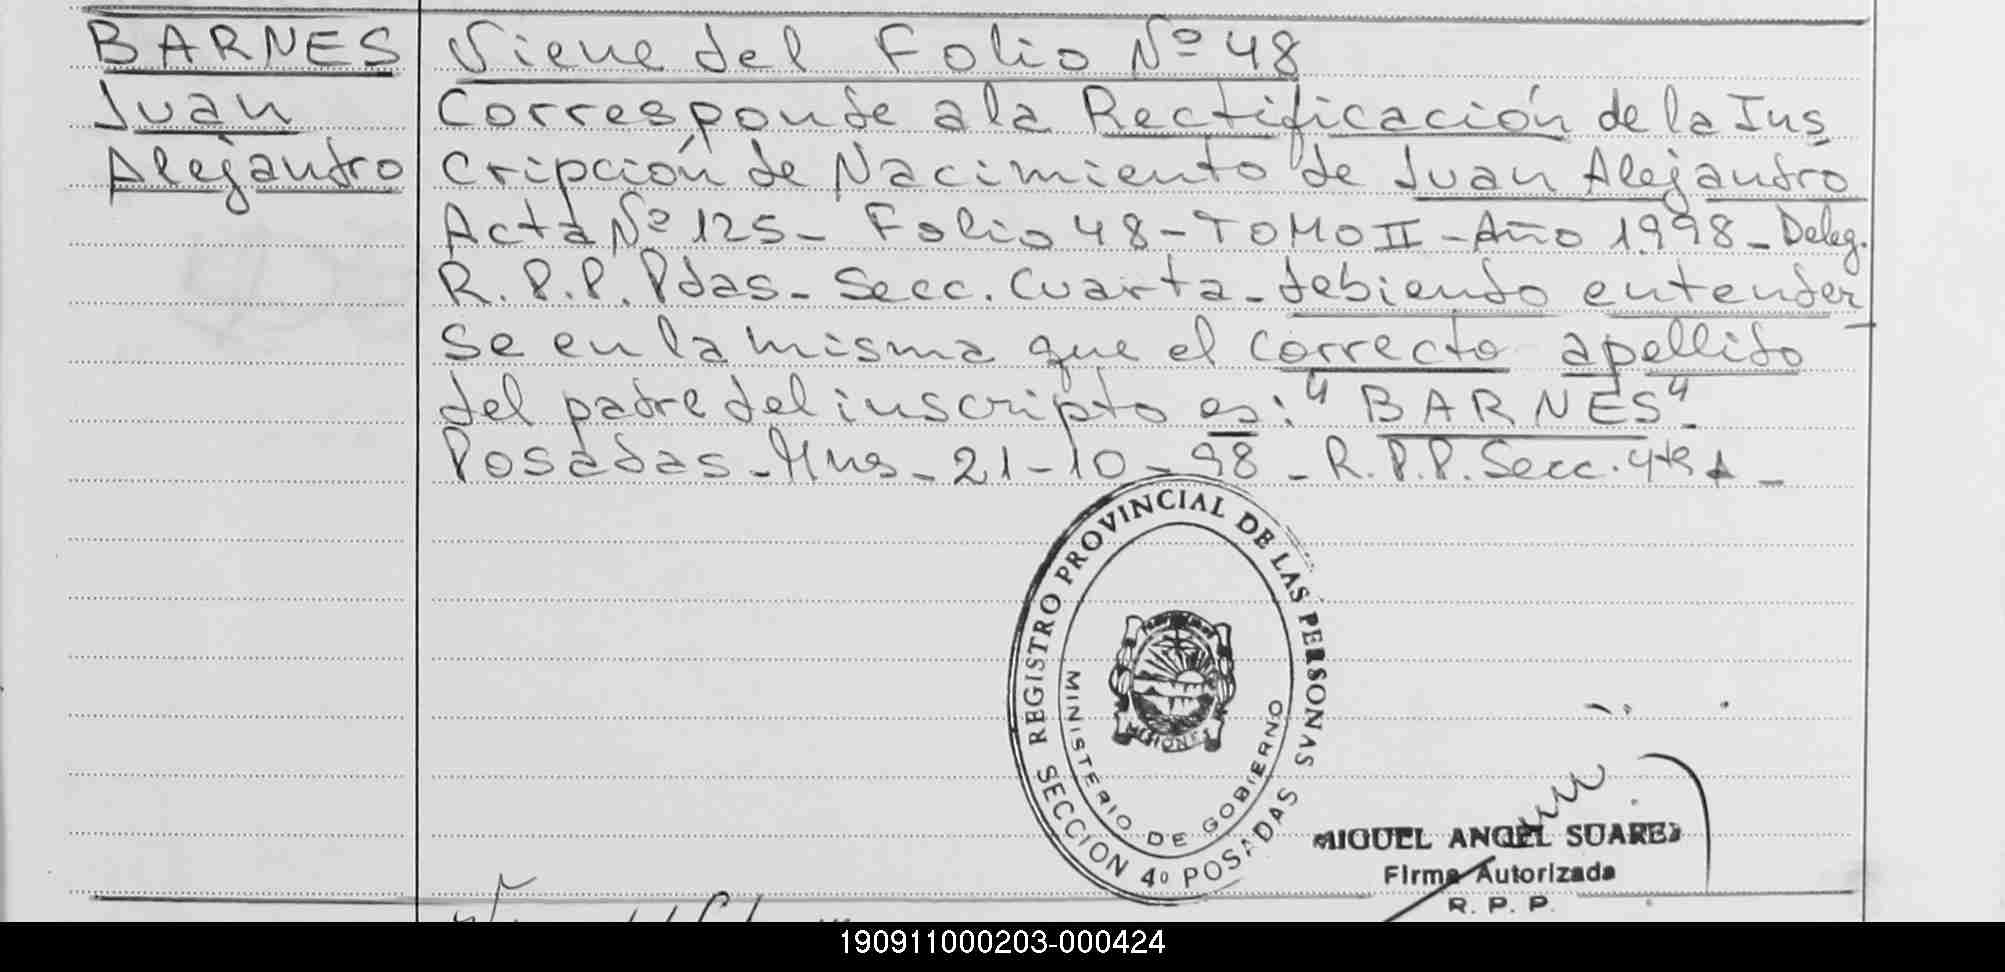 BARNES
Juan
Alejandro
Viene del Folio Nº 48
Corresponde a la Rectificación de la Ins
cripción de Nacimiento de Juan Alejandro
Acta Nº 125 - Folio 48 - TOMO II - Año 1998 - Deleg.
R. P. P. Pdas - Secc. Cuarta - debiendo entender
se en la misma que el correcto apellido
del padre del inscripto es: "BARNES"-
Posadas - Mns - 21-10-98 - R.P.P. Secc. 4ta -
REGISTRO PROVINCIAL DE LAS PERSONAS
SECCION 4º POSADAS
MINISTERIO DE GOBIERNO
MISIONES
MIGUEL ANGEL SUAREZ
Firma Autorizada
R. P. P.
190911000203-000424